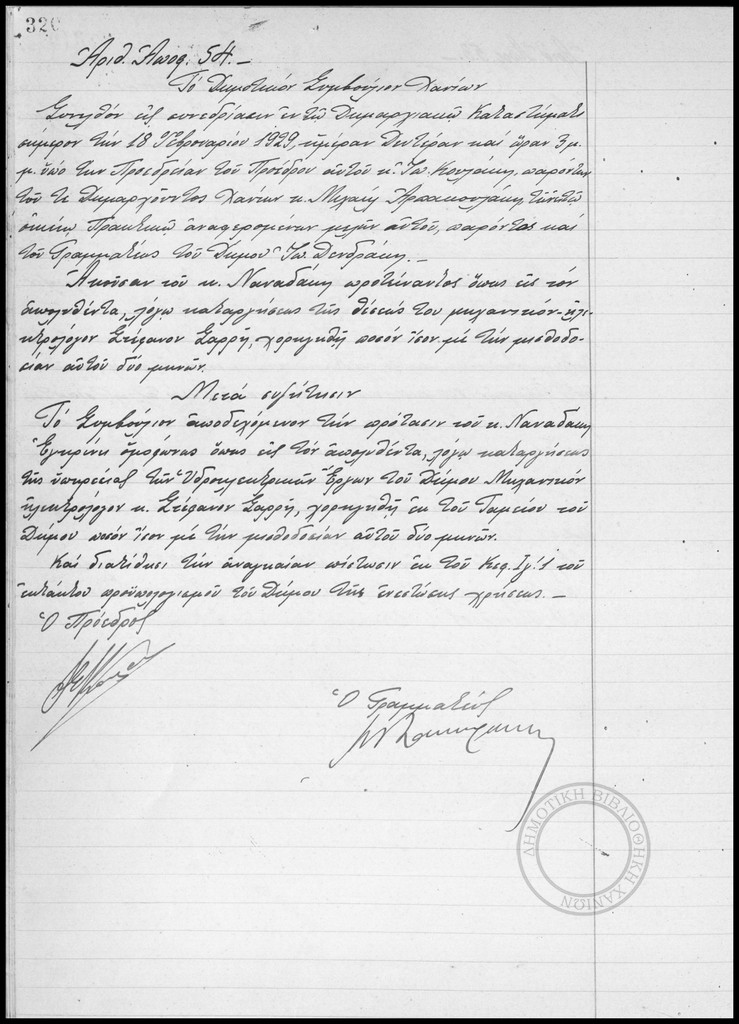 320
Ἀριθ. Ἀποφ. 54. —
Τὸ Δημοτικὸν Συμβούλιον Χανίων
Συνελθὸν εἰς συνεδρίασιν ἐν τῷ Δημαρχιακῷ Καταστήματι
σήμερον τὴν 18 Φεβρουαρίου 1929, ἡμέραν Δευτέραν καὶ ὥραν 3 μ.
μ. ὑπὸ τὴν Προεδρείαν τοῦ Προέδρου αὐτοῦ κ. Ἰω. παρόντων
τοῦ τε Δημαρχοῦντος Χανίων κ. Μιχαὴλ τῶν ἐν τῷ
οἰκείῳ Πρακτικῷ ἀναφερομένων μελῶν αὐτοῦ, παρόντος καὶ
τοῦ Γραμματέως τοῦ Δήμου Ἰω. Δενδράκη. —
Ἀκοῦσαν τοῦ κ. Ναναδάκη προτείναντος ὅπως εἰς τὸν
ἀπολυθέντα, λόγῳ καταργήσεως τῆς θέσεώς του μηχανικὸν-ἠλε-
κτρολόγον Στέφανον Σαρρῆν, χορηγηθῇ ποσὸν ἴσον μὲ τὴν μισθοδο-
σίαν αὐτοῦ δύο μηνῶν.
Μετὰ συζήτησιν
Τὸ Συμβούλιον ἀποδεχόμενον τὴν πρότασιν τοῦ κ. Ναναδάκη
Ἐγκρίνει ὁμοφώνως ὅπως εἰς τὸν ἀπολυθέντα, λόγῳ καταργήσεως
τῆς ὑπηρεσίας τῶν Ὑδροηλεκτρικῶν Ἔργων τοῦ Δήμου Μηχανικὸν
ἠλεκτρολόγον κ. Στέφανον Σαρρῆν, χορηγηθῇ ἐκ τοῦ Ταμείου τοῦ
Δήμου ποσὸν ἴσον μὲ τὴν μισθοδοσίαν αὐτοῦ δύο μηνῶν.
Καὶ διατίθησι τὴν ἀναγκαίαν πίστωσιν ἐκ τοῦ Κεφ. Ιγ΄. 1 τοῦ
ἐκτάκτου προϋπολογισμοῦ τοῦ Δήμου τῆς ἐνεστώσης χρήσεως. —
Ὁ Πρόεδρος
Ὁ Γραμματεὺς
ΔΗΜΟΤΙΚΗ ΒΙΒΛΙΟΘΗΚΗ ΧΑΝΙΩΝ